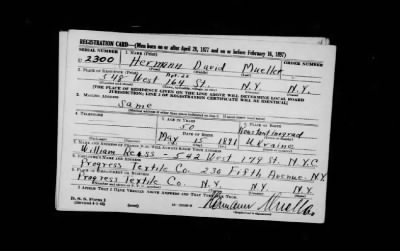 REGISTRATION CARD—(Men born on or after April 28, 1877 and on or before February 16, 1897)
SERIAL NUMBER 1. NAME (Print) ORDER NUMBER
U 2300 Hermann David Mueller
(First) (Middle) (Last)
2. PLACE OF RESIDENCE (Print) Apt. 22
548 West 164 St. N.Y. N.Y.
[THE PLACE OF RESIDENCE GIVEN ON THE LINE ABOVE WILL DETERMINE LOCAL BOARD
JURISDICTION; LINE 2 OF REGISTRATION CERTIFICATE WILL BE IDENTICAL]
3. MAILING ADDRESS
Same
4. TELEPHONE 5. AGE IN YEARS 6. PLACE OF BIRTH
50
DATE OF BIRTH
May 15 1891 Ukraine
7. NAME AND ADDRESS OF PERSON WHO WILL ALWAYS KNOW YOUR ADDRESS
William Reass - 542 West 179 St. N.Y.C
8. EMPLOYER'S NAME AND ADDRESS
Progress Textile Co. 230 Fifth Avenue N.Y.
9. PLACE OF EMPLOYMENT OR BUSINESS
Progress Textile Co. N.Y. N.Y. N.Y.
I AFFIRM THAT I HAVE VERIFIED ABOVE ANSWERS AND THAT THEY ARE TRUE.
D. S. S. Form 1
Hermann Mueller